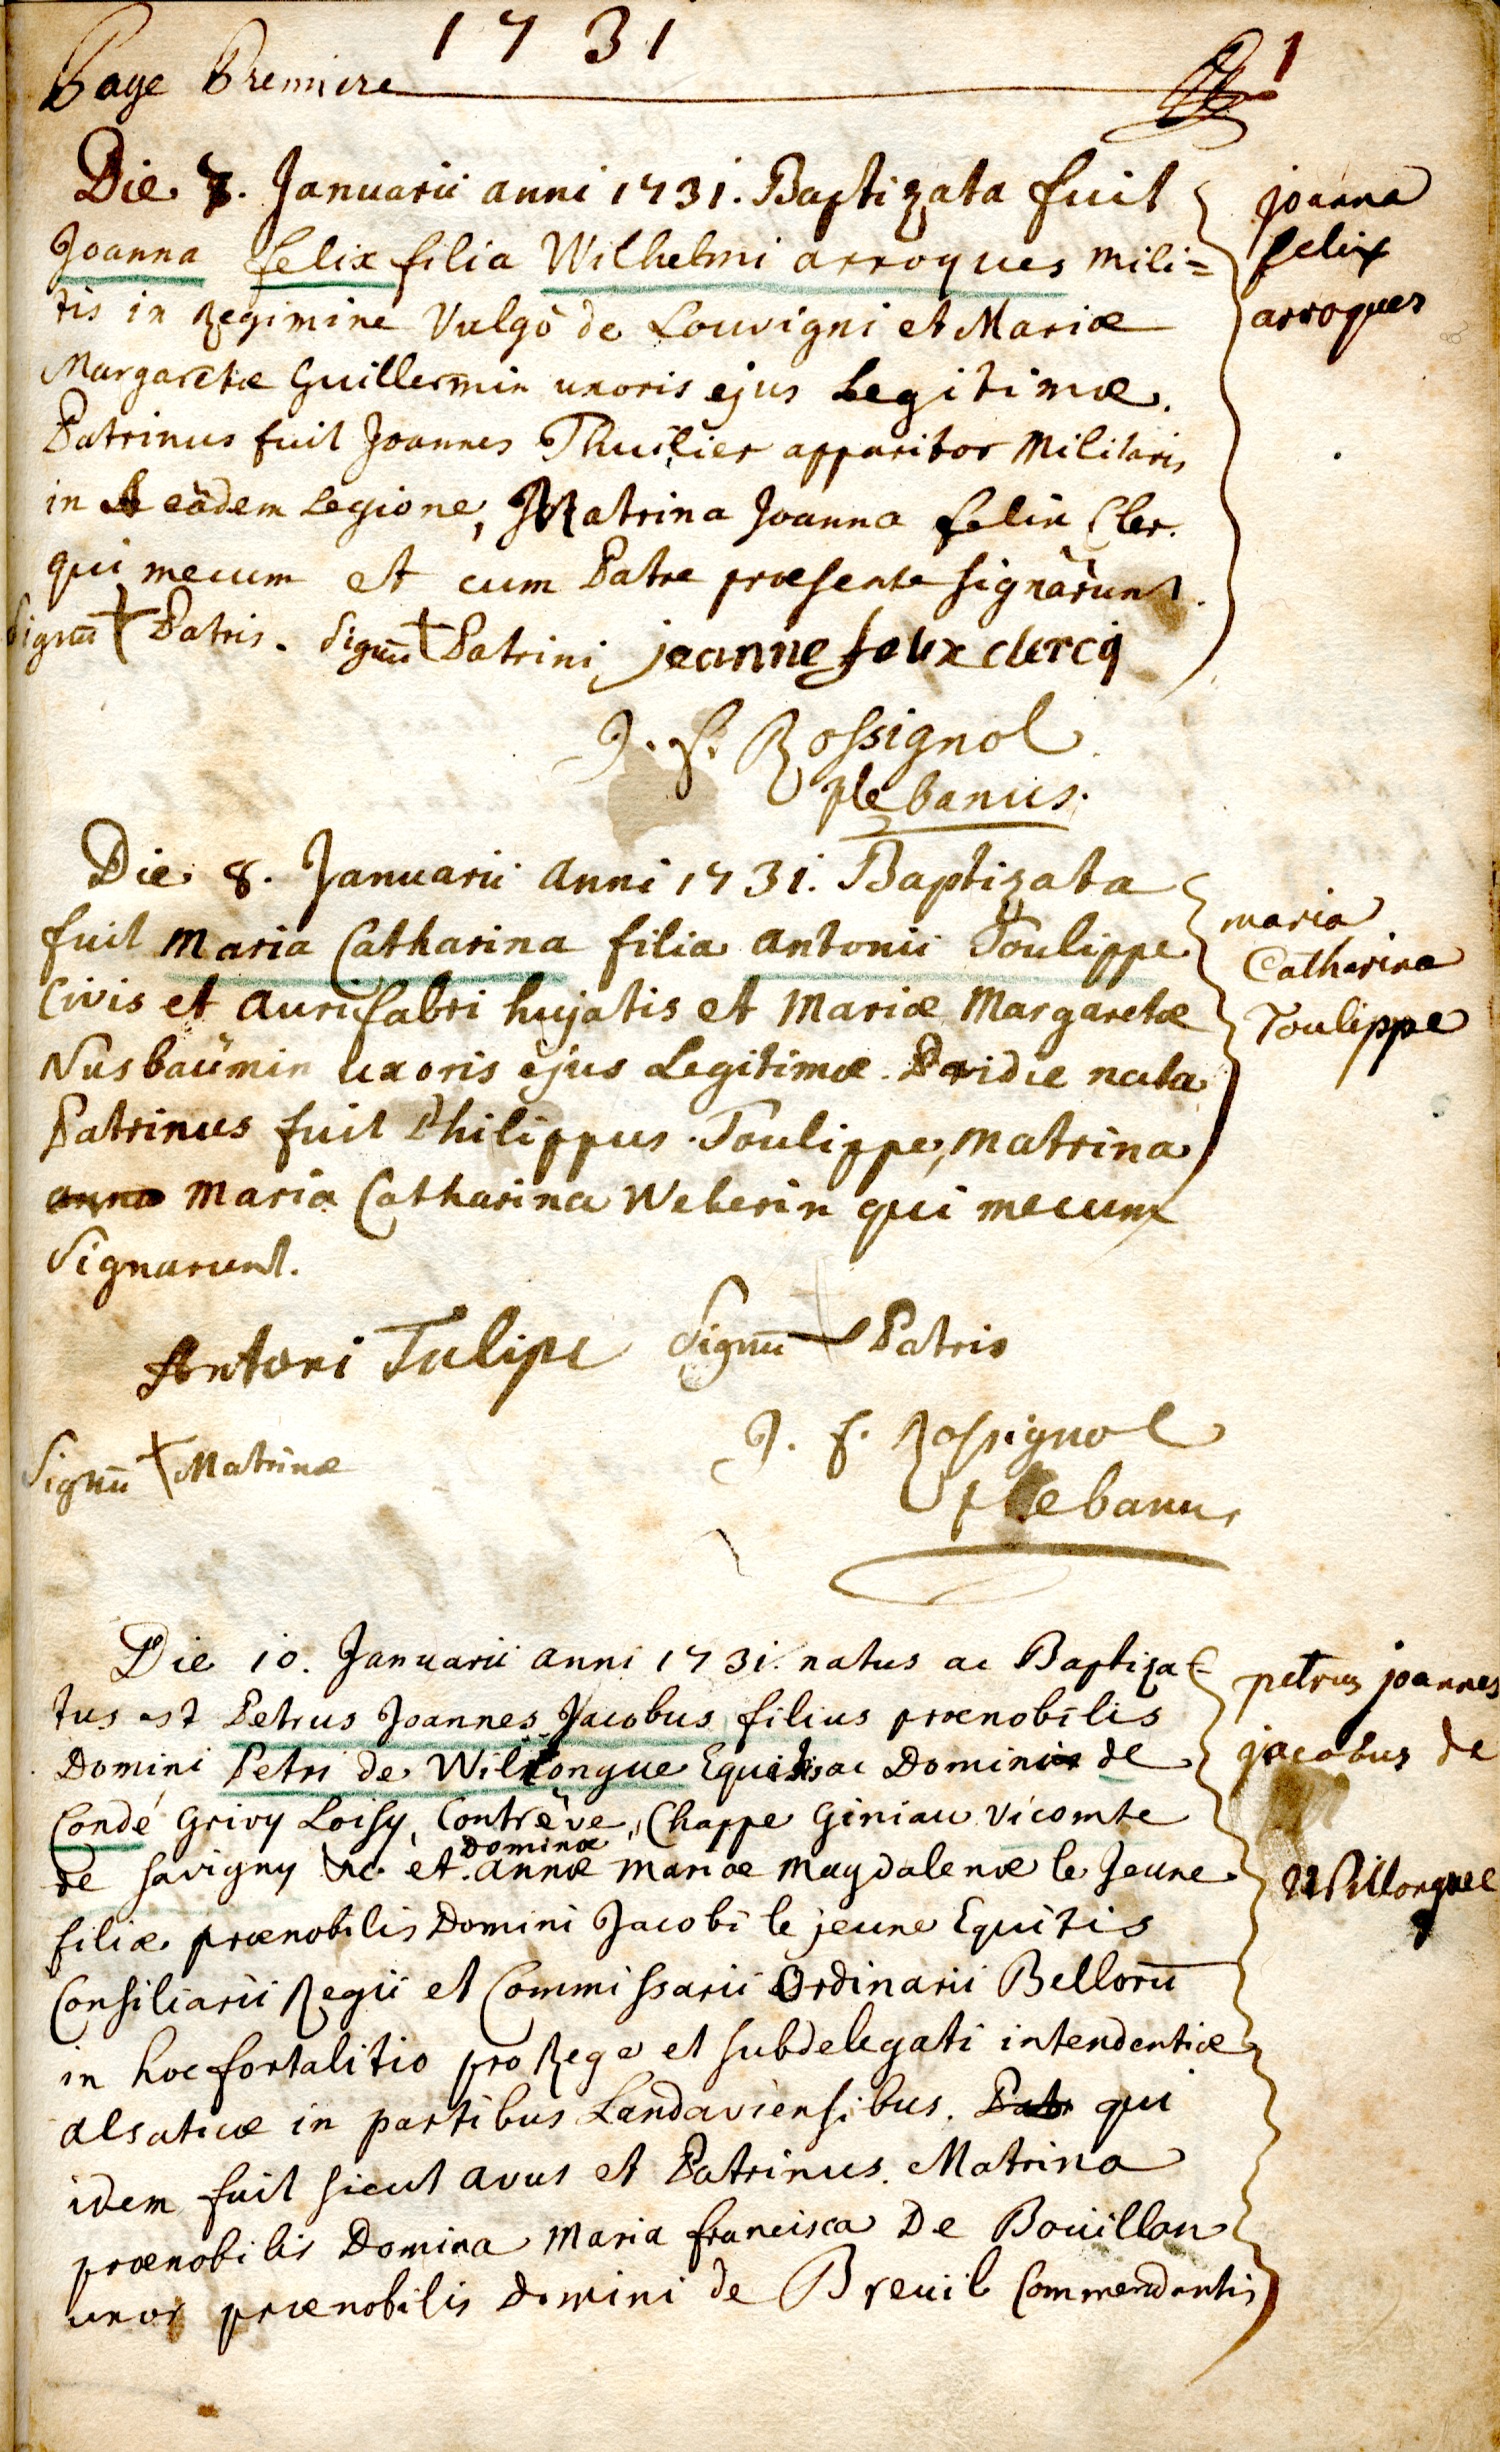 1731
Page Premiere
1
Die 8. Januarii anni 1731. Baptizata fuit
Joanna felix filia Wilhelmi arroques mili=
tis in Regimine Vulgò de Louvigni et Mariæ
Margaretæ Guillermin uxoris ejus Legitimæ.
Patrinus fuit Joannes Thuilier apparitor Militaris
in eâdem Legione, Matrina Joanna felix Cler.
qui mecum et cum Patre præsente signârunt.
Signū Patris. Signū Patrini jeanne felix clercq
J. f. Rossignol
plebanus.
joanna
felix
arroques
Die 8. Januarii anni 1731. Baptizata
fuit Maria Catharina filia antonii Toulippe
Civis et aurifabri hujatis et Mariæ Margaretæ
Nusbaŭmin uxoris ejus Legitimæ. Pridie nata
Patrinus fuit Philippus Toulippe, Matrina
anna Maria Catharina Weberin qui mecum
Signarunt.
Antoni Tulipe Signū Patris
Signū Matrinæ
J. f. Rossignol
plebanus
maria
Catharina
Toulippe
Die 10. Januarii anni 1731. natus ac Baptiza=
tus est Petrus Joannes Jacobus filius prænobilis
Domini Petri de Willongue Equitis ac Domini de
Condé Grivy Loisy, Contrêve, Chappe Giniau Vicomte
de Savigny &c et Dominæ annæ Mariæ Magdalenæ le Jeune
filiæ prænobilis Domini Jacobi le jeune Equitis
Consiliarii Regii et Commissarii Ordinarii Bellorū
in hoc fortalitio pro Rege et subdelegati intendentiæ
alsaticæ in partibus Landaviensibus. Patr qui
idem fuit sicut avus et Patrinus. Matrina
prænobilis Domina Maria francisca De Bouillon
uxor prænobilis Domini de Breuil Commendantis
petrus joannes
jacobus de
Willongue